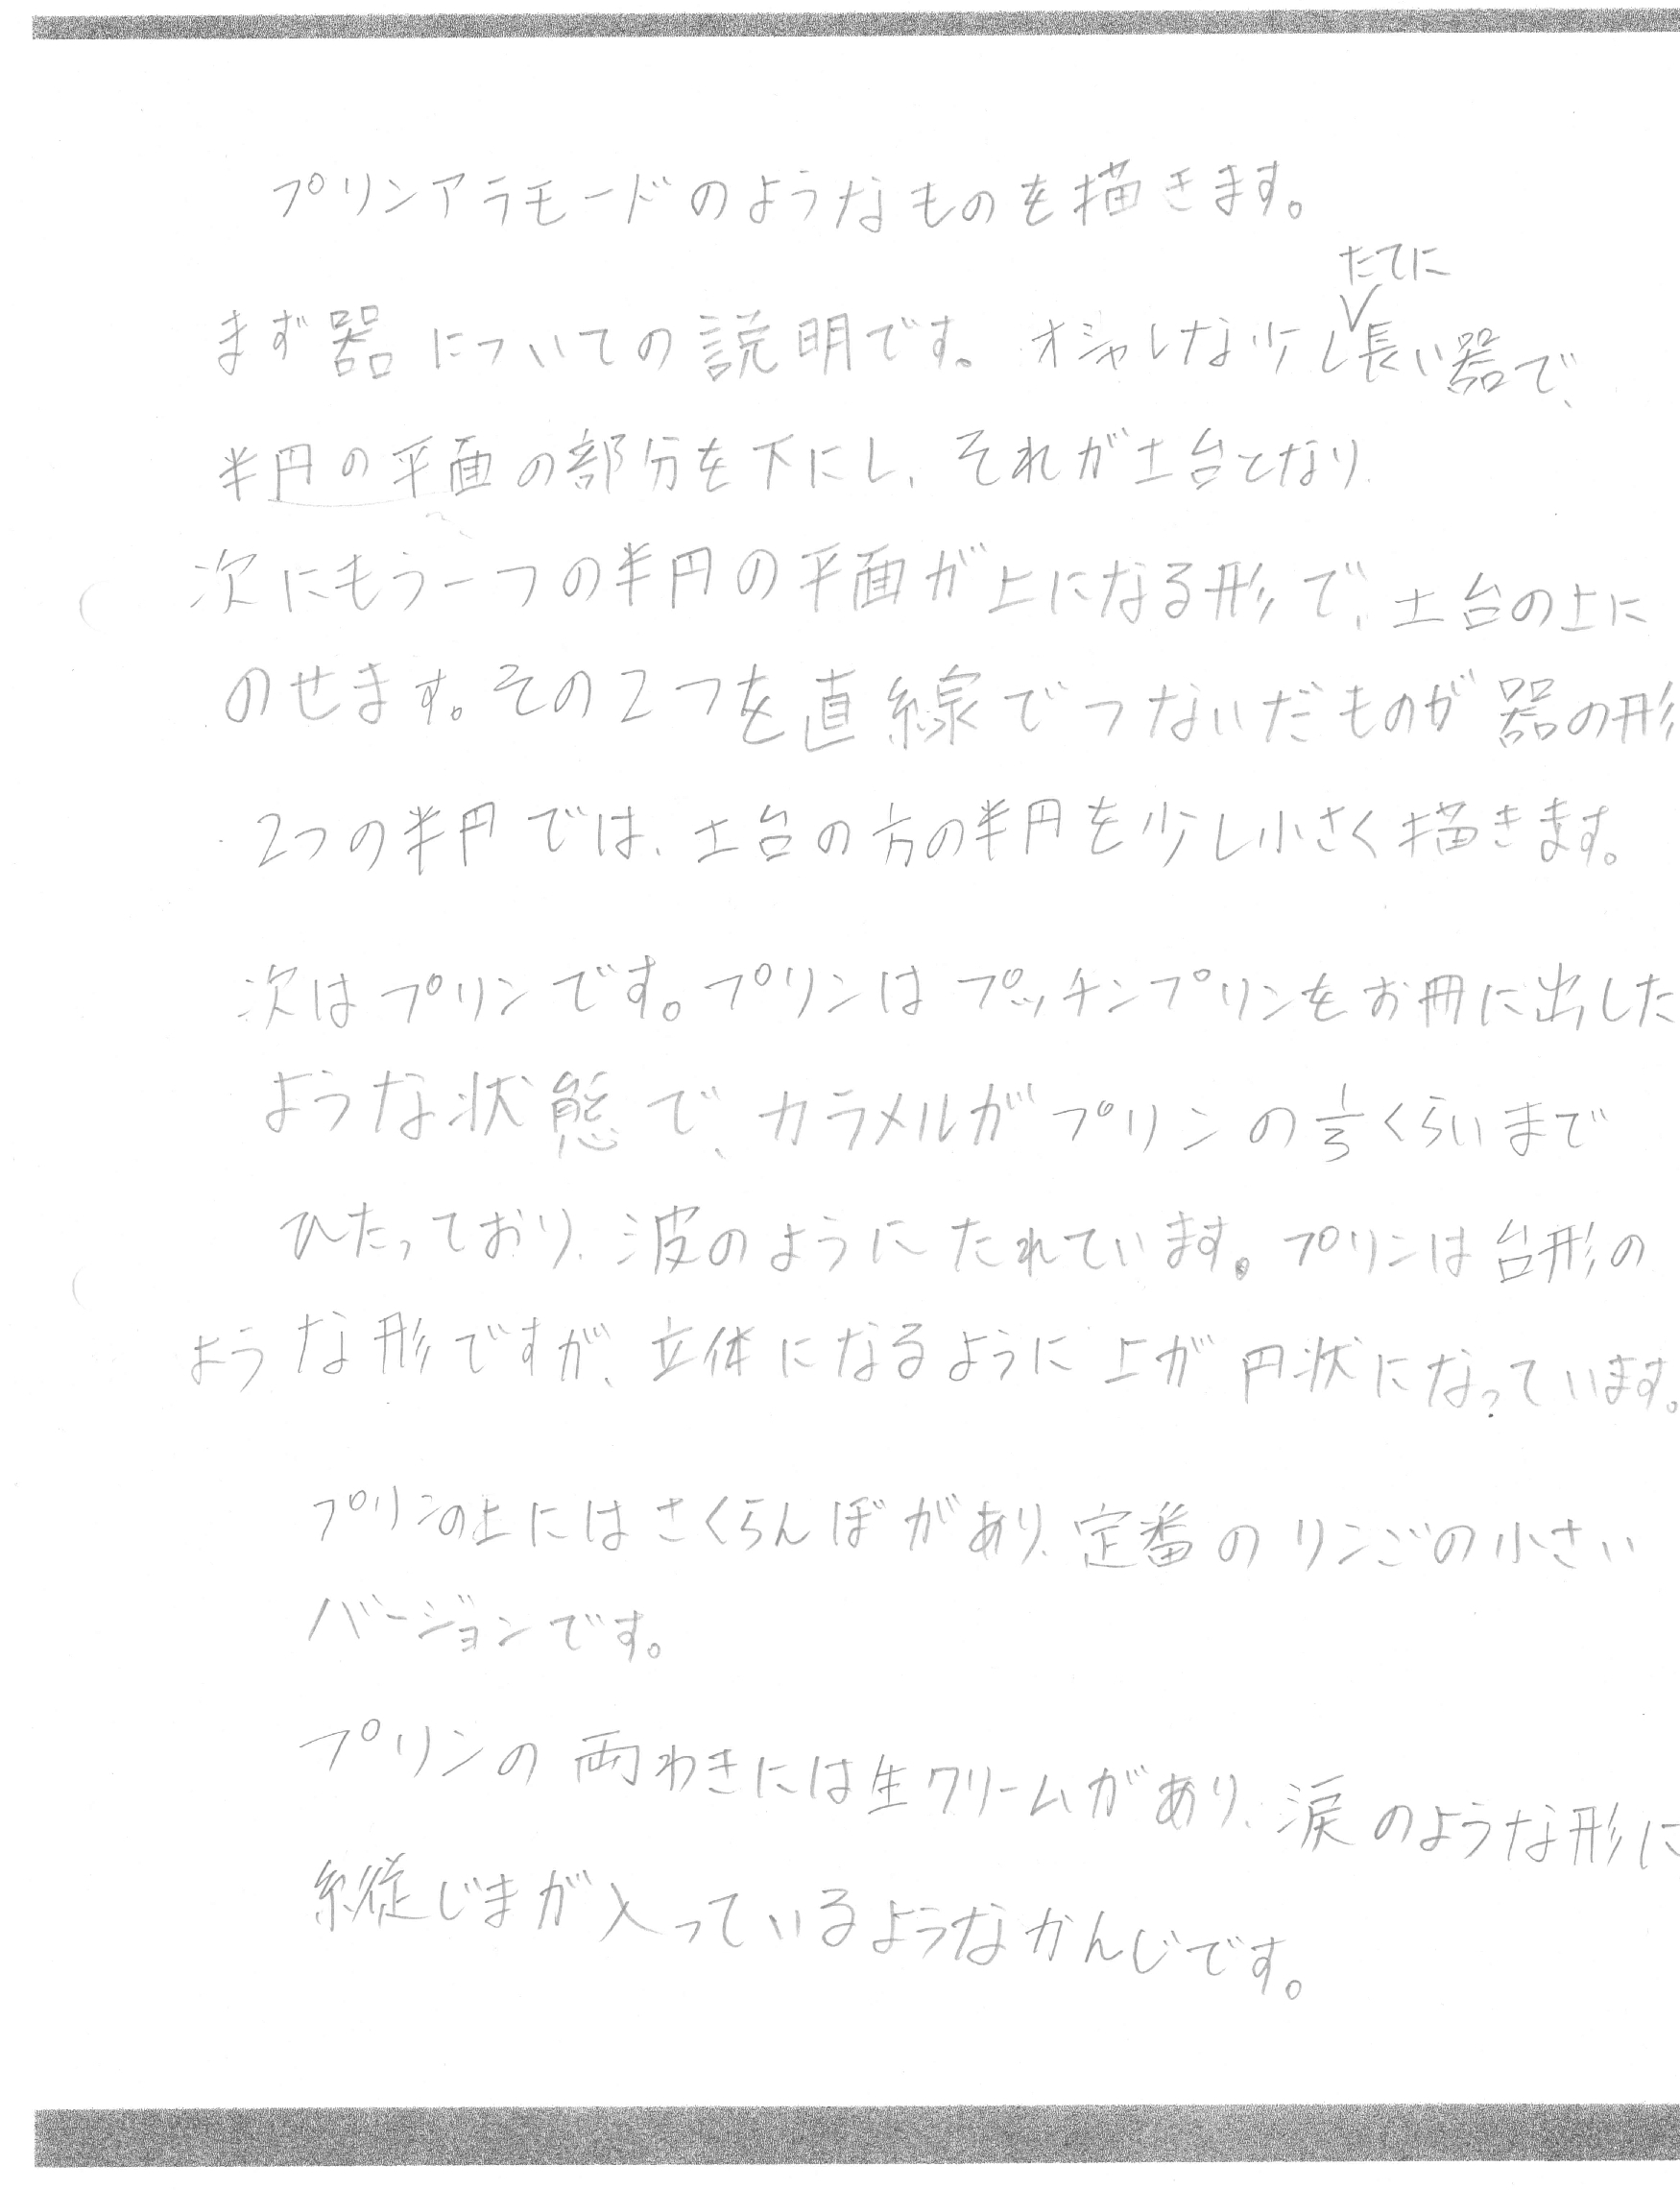 プリンアラモードのようなものを描きます。
たてに
まず器についての説明です。オシャレな少し長い器で、
半円の平面の部分を下にし、それが土台となり
次にもう一つの半円の平面が上になる形で、土台の上に
のせます。その2つを直線でつないだものが器の形
2つの半円では、土台の方の半円を少し小さく描きます。
次はプリンです。プリンはプッチンプリンをお皿に出した
ような状態で、カラメルがプリンの1/3くらいまで
ひたっており、波のようにたれています。プリンは台形の
ような形ですが、立体になるように上が円状になっています。
プリンの上にはさくらんぼがあり、定番のリンごの小さい
バージョンです。
プリンの両わきには生クリームがあり、涙のような形に
縦じまが入っているようなかんじです。